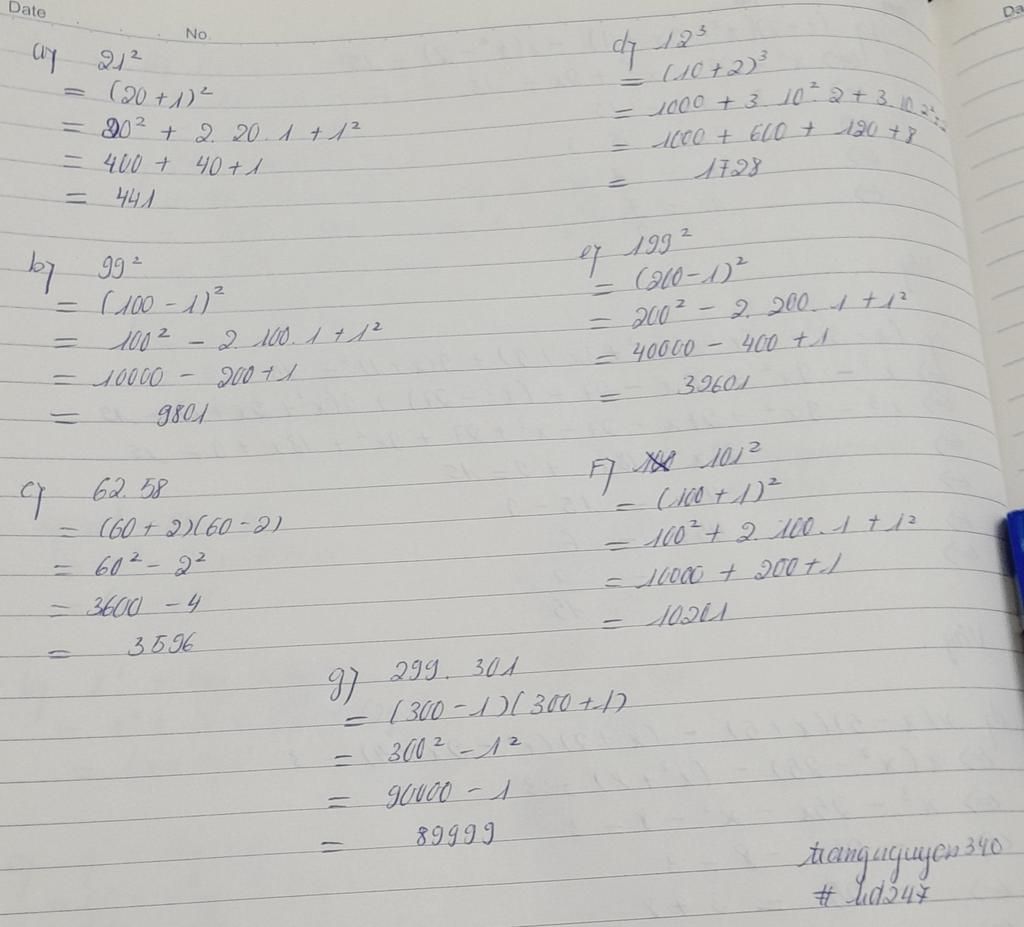 Date
No.
Da
a) 21²
= (20+1)²
= 20² + 2. 20. 1 + 1²
= 400 + 40 + 1
= 441
b) 99²
= (100 - 1)²
= 100² - 2. 100. 1 + 1²
= 10000 - 200 + 1
= 9801
c) 62. 58
= (60 + 2)(60 - 2)
= 60² - 2²
= 3600 - 4
= 3596
d) 12³
= (10 + 2)³
= 1000 + 3. 10². 2 + 3. 10. 2²
= 1000 + 600 + 120 + 8
= 1728
e) 199²
= (200 - 1)²
= 200² - 2. 200. 1 + 1²
= 40000 - 400 + 1
= 39601
F) 101²
= (100 + 1)²
= 100² + 2. 100. 1 + 1²
= 10000 + 200 + 1
= 10201
g) 299. 301
= (300 - 1)(300 + 1)
= 300² - 1²
= 90000 - 1
= 89999
trangnguyen340